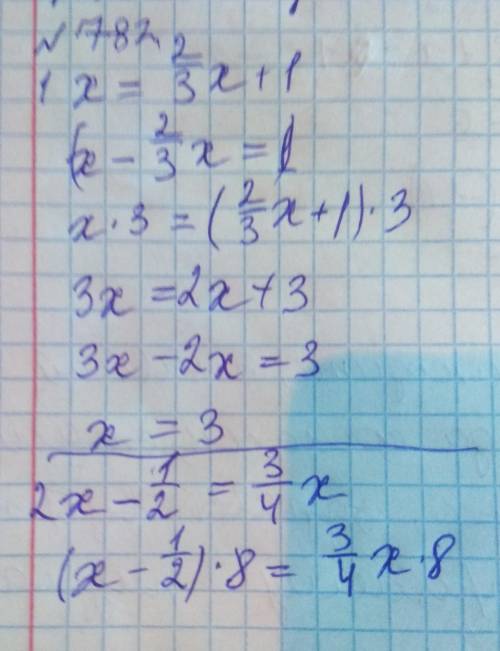 № 782
1 x = 2/3 x + 1
(x - 2/3 x = 1
x · 3 = (2/3 x + 1) · 3
3x = 2x + 3
3x - 2x = 3
x = 3
2 x - 1/2 = 3/4 x
(x - 1/2) · 8 = 3/4 x · 8